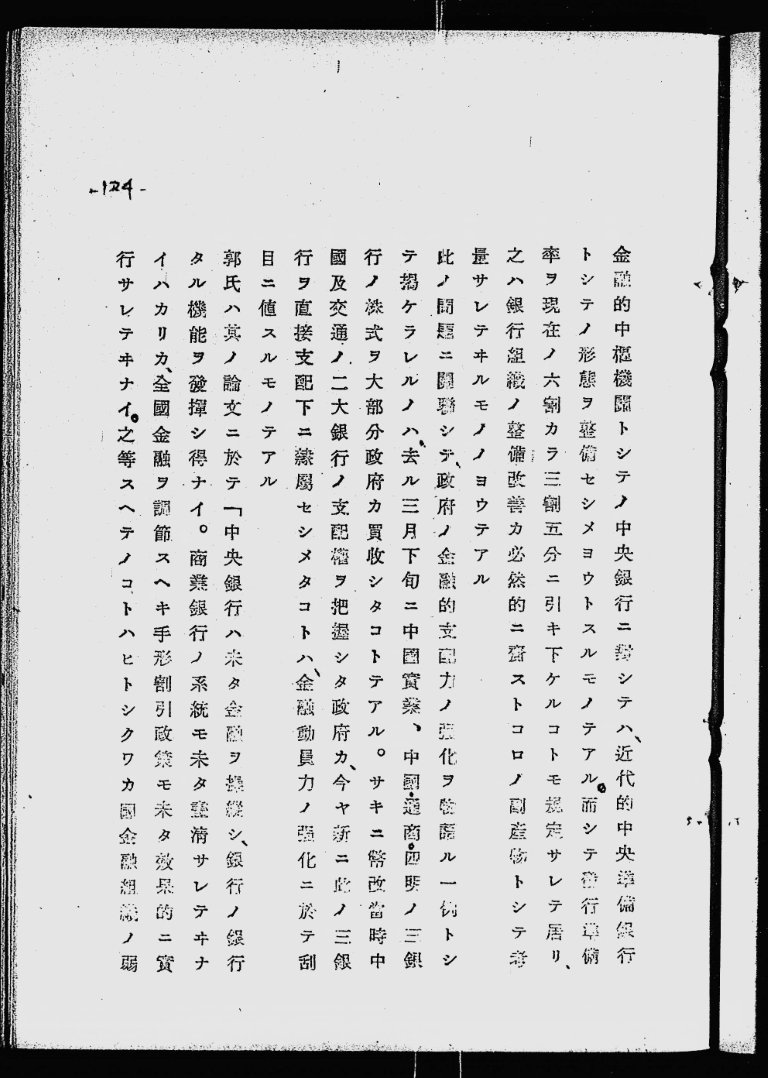 -124-
金融的中樞機關トシテノ中央銀行ニ對シテハ、近代的中央準備銀行
トシテノ形態ヲ整備セシメヨウトスルモノテアル。而シテ發行準備
率ヲ現在ノ六割カラ三割五分ニ引キ下ケルコトモ規定サレテ居リ、
之ハ銀行組織ノ整備改善カ必然的ニ齎ストコロノ副産物トシテ考
量サレテヰルモノノヨウテアル
此ノ問題ニ關聯シテ、政府ノ金融的支配力ノ强化ヲ物語ル一例トシ
テ揭ケラレルノハ、去ル三月下旬ニ中國實業、中國通商、四明ノ三銀
行ノ株式ヲ大部分政府カ買收シタコトテアル。サキニ幣改當時中
國及交通ノ二大銀行ノ支配權ヲ把握シタ政府カ、今ヤ新ニ此ノ三銀
行ヲ直接支配下ニ隷屬セシメタコトハ、金融動員力ノ强化ニ於テ刮
目ニ値スルモノテアル
郭氏ハ其ノ論文ニ於テ「中央銀行ハ未タ金融ヲ操縱シ、銀行ノ銀行
タル機能ヲ發揮シ得ナイ。商業銀行ノ系統モ未タ畫淸サレテヰナ
イハカリカ、全國金融ヲ調節スヘキ手形割引政策モ未タ效果的ニ實
行サレテヰナイ。之等スヘテノコトハヒトシクワカ國金融組織ノ弱